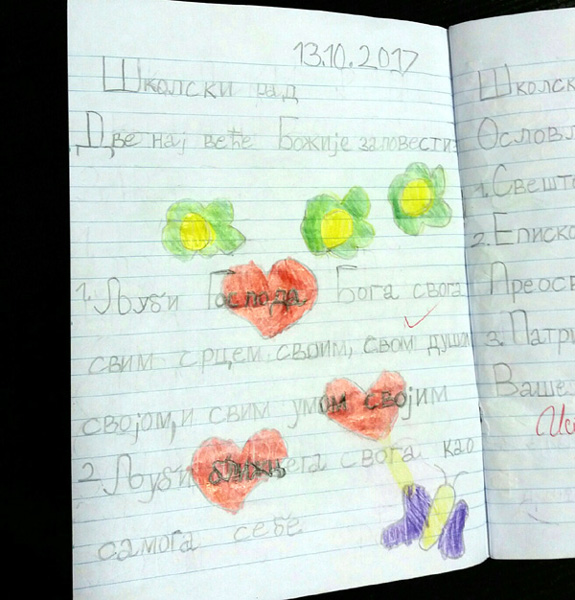 13.10.2017
Школски рад
Две нај веће Божије заповести
1. Љуби Господа Бога свога
свим срцем својим, свом душом
својом, и свим умом својим
2. Љуби ближњега свога као
самога себе
Школск
Ословљ
1. Свешт
2. Еписко
Преосв
3. Патри
Ваше